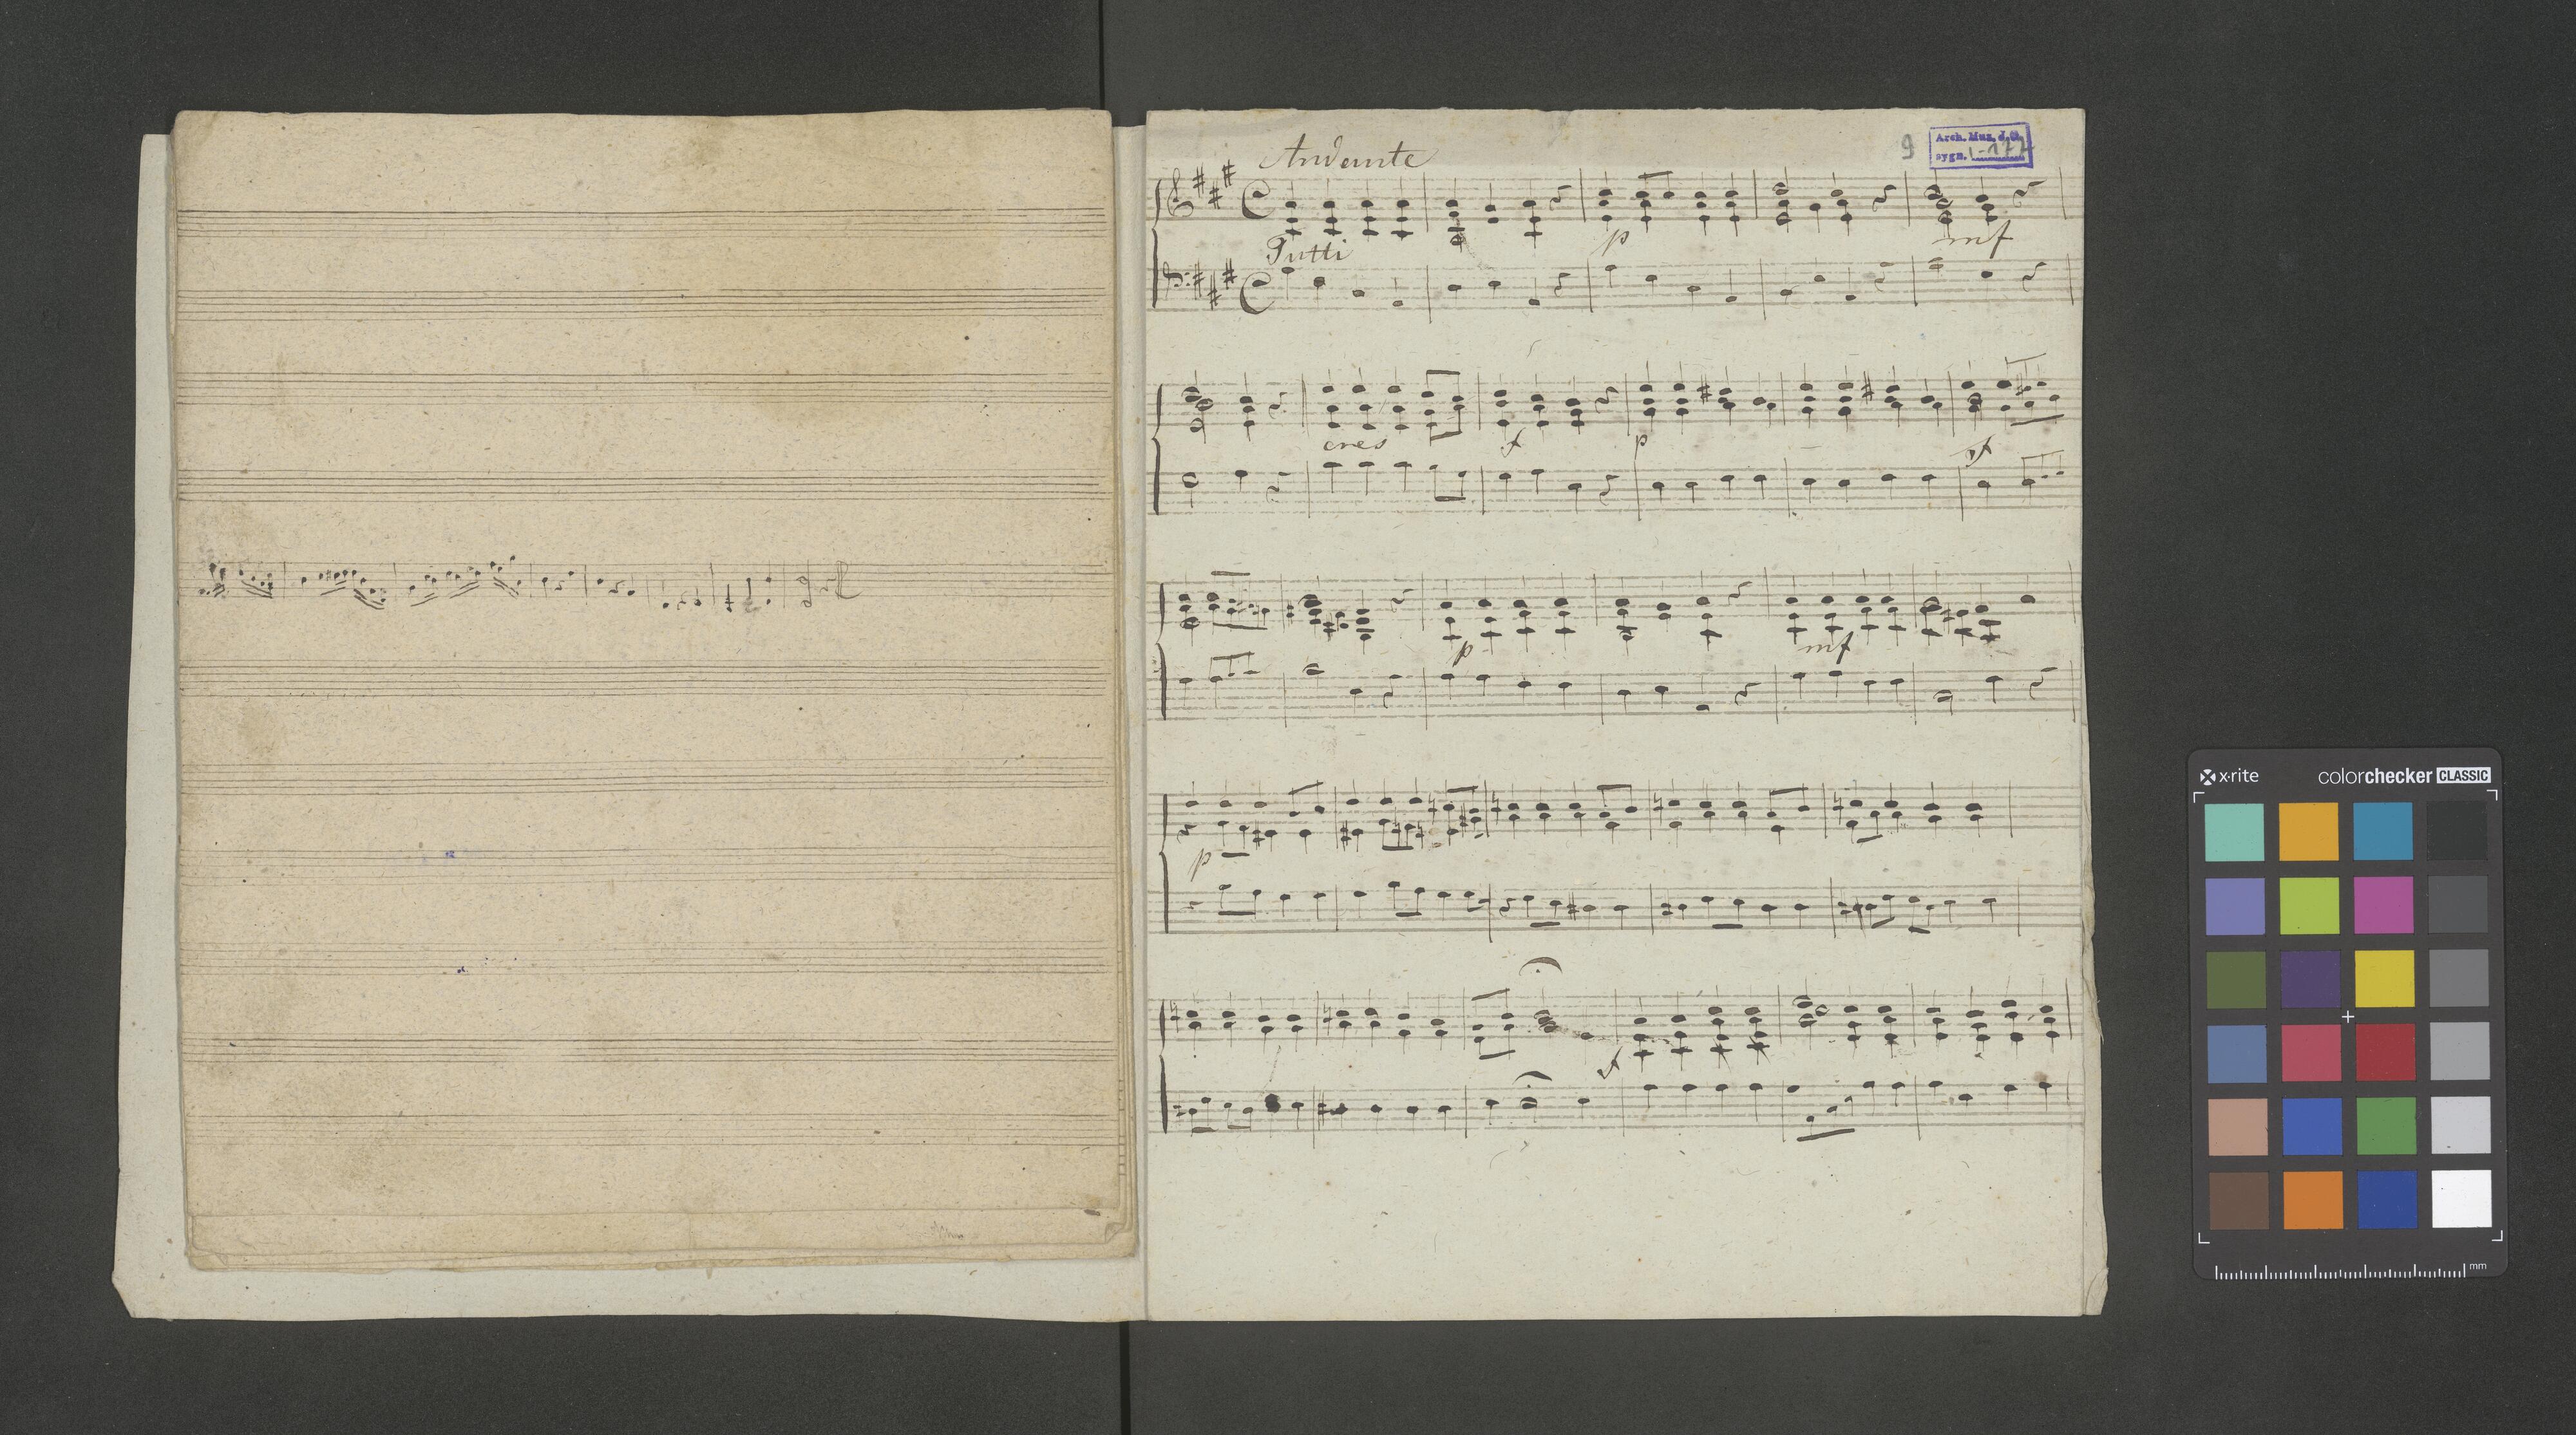 Andante
9
Arch. Muz. J. G.
sygn. I-177
Tutti
p
mf
cres
f
p
sf
p
mf
p
f
x-rite
colorchecker CLASSIC
mm